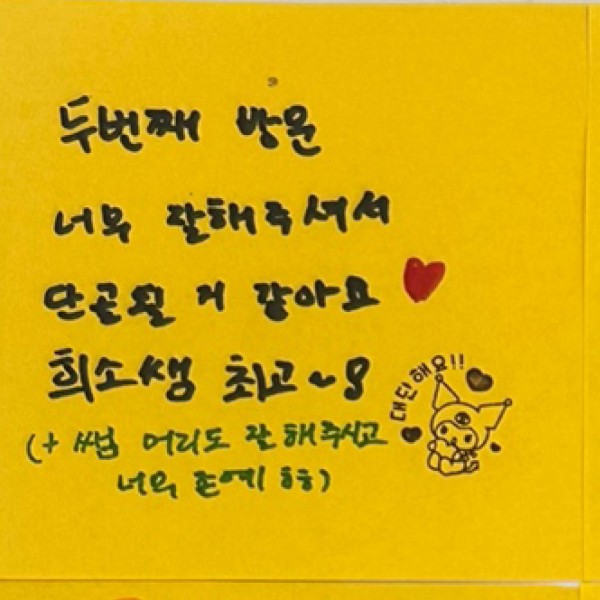 두번째 방문
너무 잘해주셔서
단골될 거 같아요
희소쌤 최고~!
(+ 쌤 머리도 잘해주시고
너무 존예 ㅎㅎ)
대단해요!!